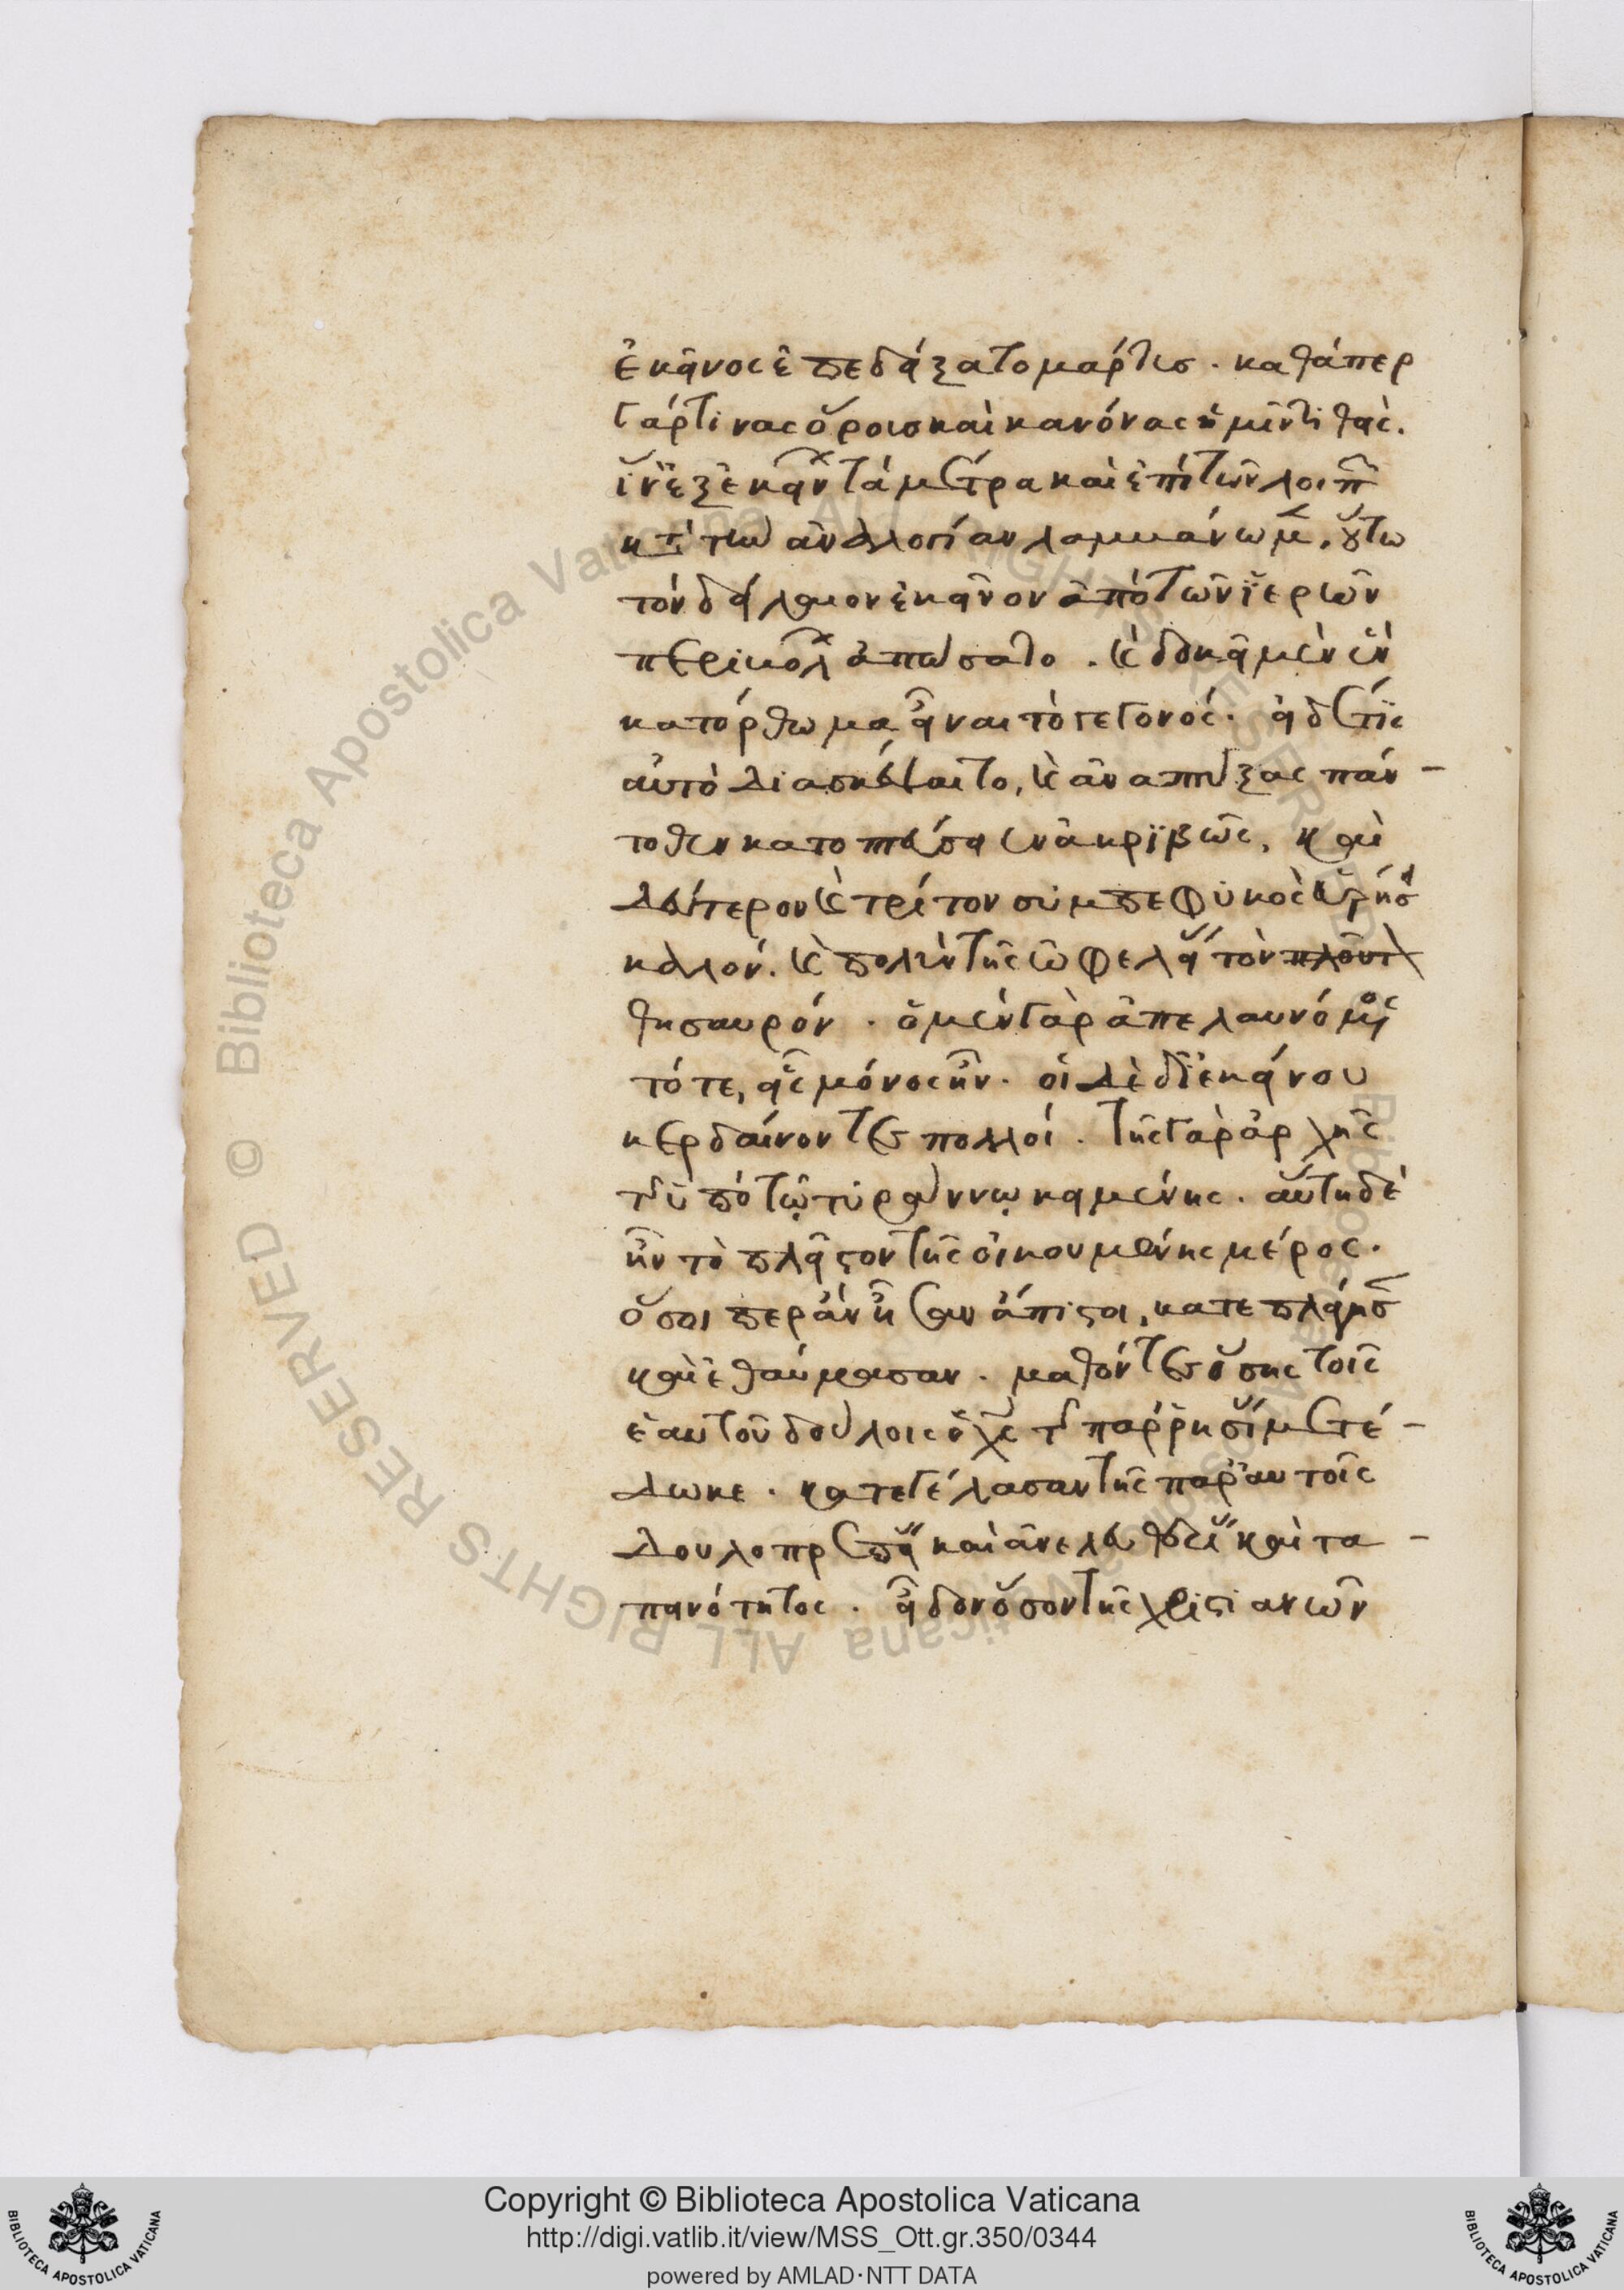 ἐκεῖνος ἐπεδείξατο μάρτυς. καθάπερ
γάρ τινας ὅρους καὶ κανόνας ἡμῖν τιθείς.
ἵν' ἐξ ἐκείν τὰ μέτρα καὶ ἐπὶ τῶν λοιπῶν
κτ τὴν ἀναλογίαν λαμβάνωμεν, οὕτω
τὸν δείλαιον ἐκεῖνον ἀπὸ τῶν ἱερῶν
περιβόλ ἀπώσατο. καὶ δοκεῖ μὲν ἓν
κατόρθωμα εἶναι τὸ γεγονός. εἰ δέ τις
αὐτὸ διασκέψαιτο, καὶ ἀναπτύξας πάν-
τοθεν κατοπτεύσειεν ἀκριβῶς, καὶ
δεύτερον καὶ τρίτον συμπεφυκὸς εὑρήσει
καλόν. καὶ πολὺν τῆς ὠφελείας τὸν πλοῦτ
θησαυρόν. ὁ μὲν γὰρ ἀπελαυνόμενος
τότε, εἷς μόνος ἦν. οἱ δὲ δι' ἐκείνου
κερδαίνοντες πολλοί. τῆς γὰρ ἀρχῆς
τῆς ὑπὸ τῷ τυράννῳ κειμένης. αὕτη δὲ
ἦν τὸ πλεῖστον τῆς οἰκουμένης μέρος.
ὅσοιπερ ἂν ἦσαν ἄπιστοι, κατεπλάγησαν
καὶ ἐθαύμασαν. μαθόντες ὅσης τοῖς
ἑαυτοῦ δούλοις ὁ χς τῆς παρρησίας μετέ-
δωκε. κατεγέλασαν τῆς παρ' αὐτοῖς
δουλοπρεπείας καὶ ἀνελευθερίας καὶ τα-
πεινότητος. εἶδον ὅσον τῆς χριστιανῶν